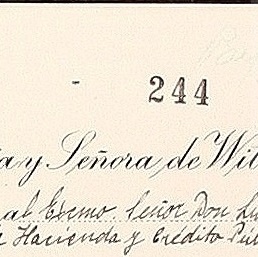 - 244
a y Señora de Wil
al Excmo. Señor Don Lu
Hacienda y Crédito Púb